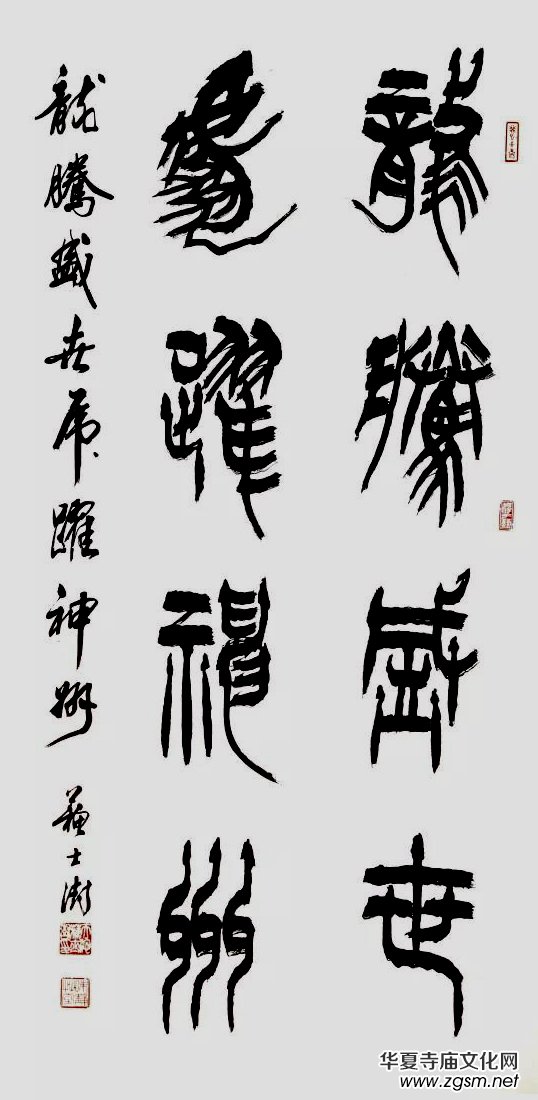 龍騰盛世
虎躍神州
龍騰盛世虎躍神州
蘇士澍
华夏寺庙文化网
www.zgsm.net